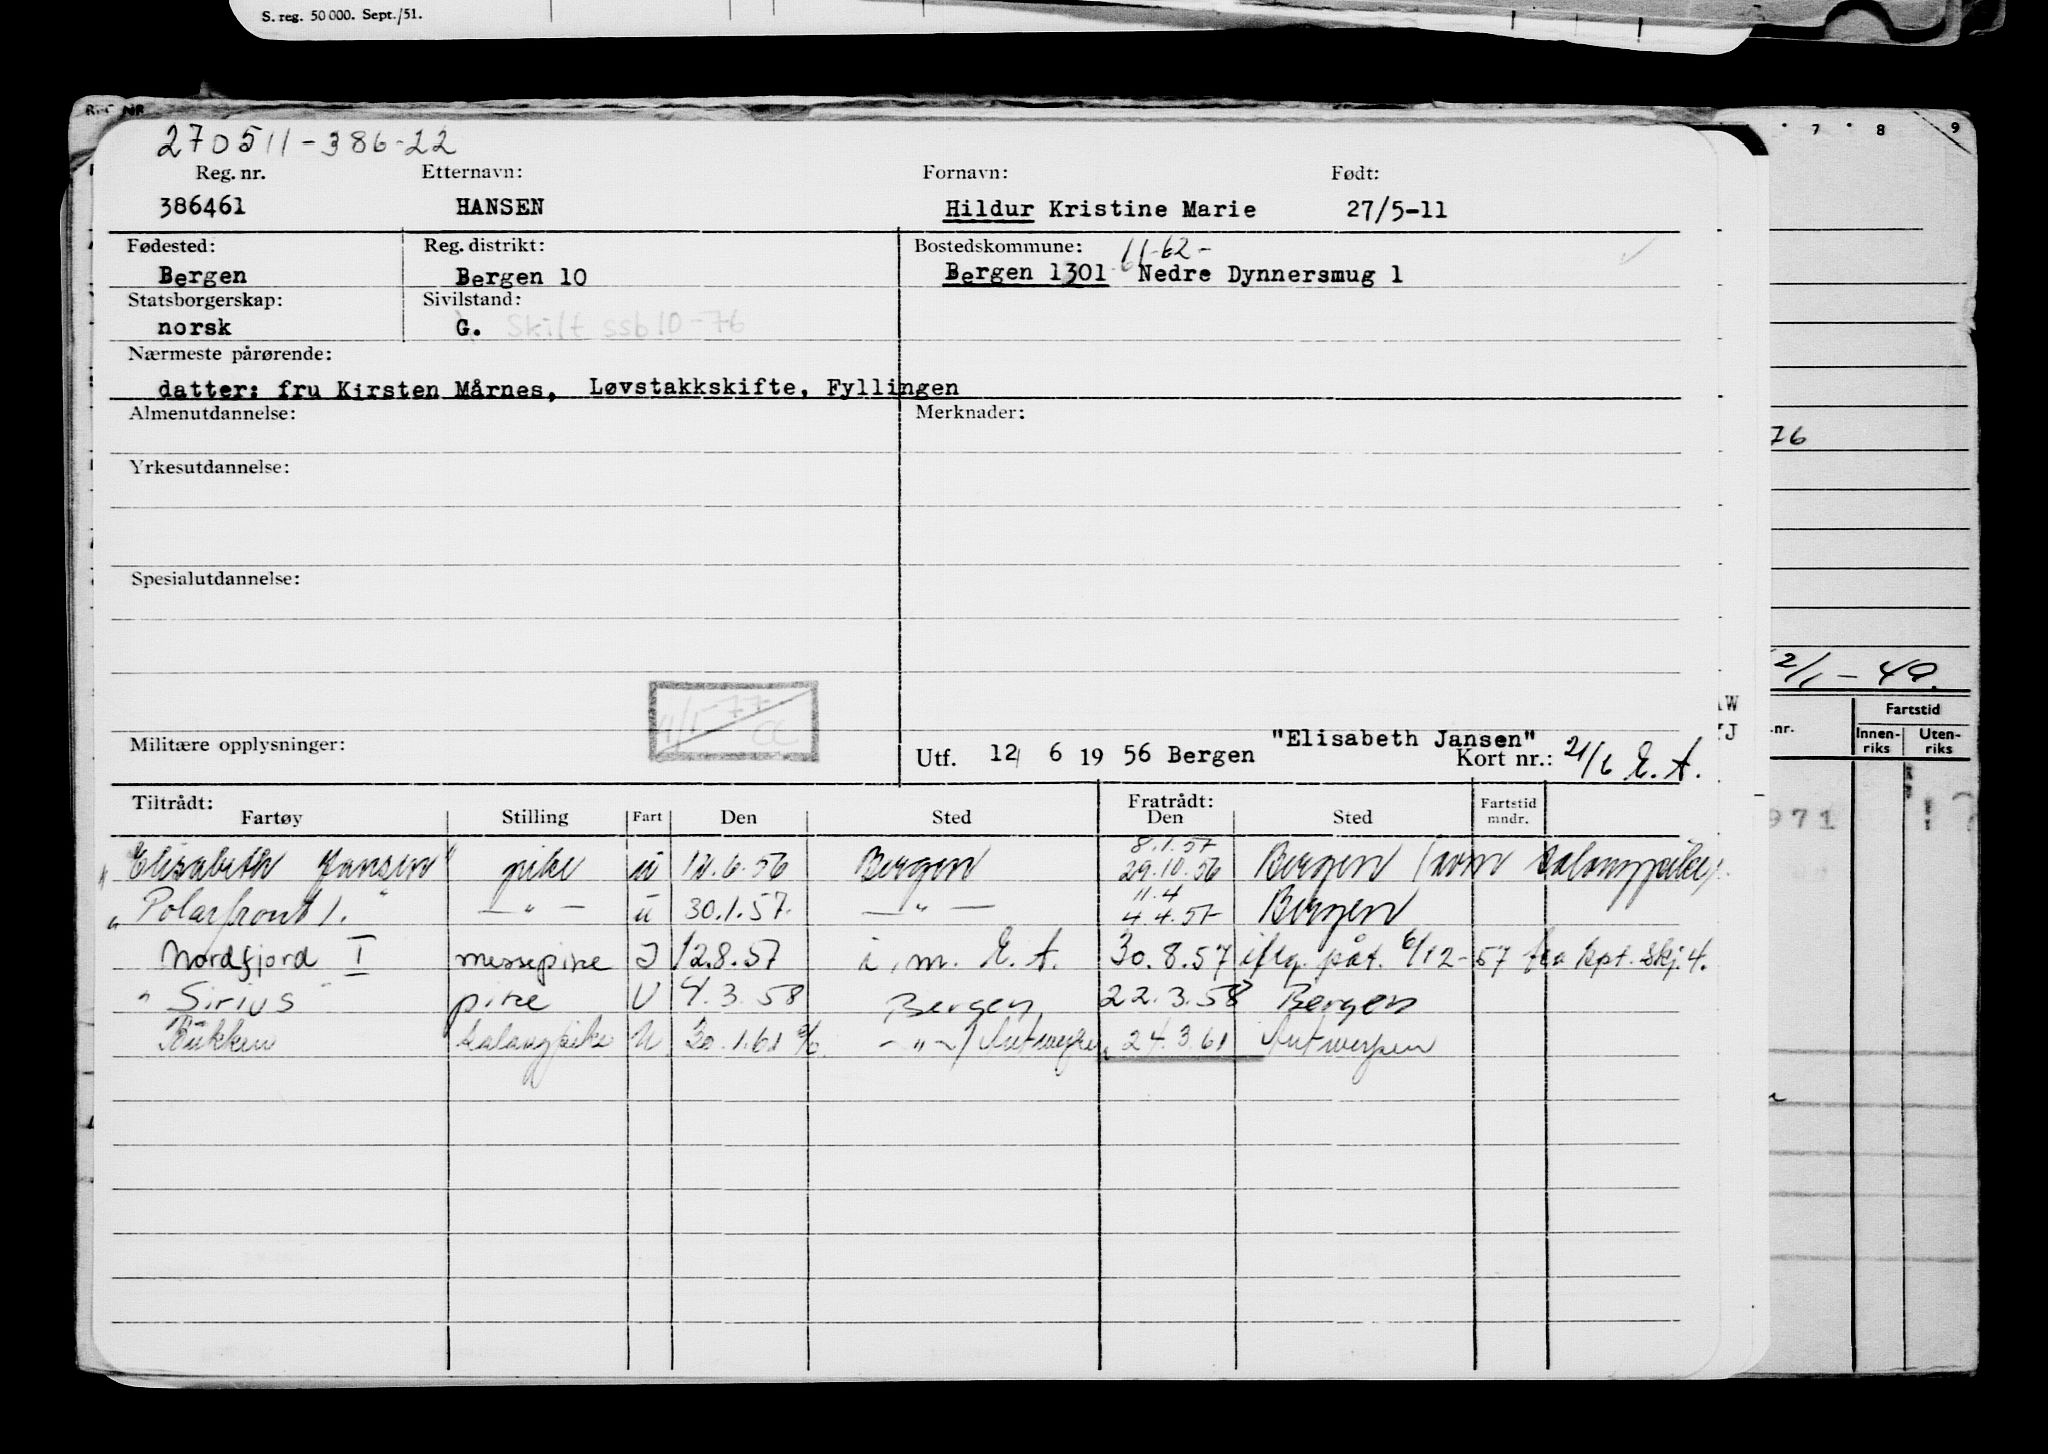 S. reg. 50 000. Sept./51.
270511-386-22
Reg. nr. Etternavn: Fornavn: Født:
386461 HANSEN Hildur Kristine Marie 27/5-11
Fødested: Reg. distrikt: Bostedskommune: 11-62-
Bergen Bergen 10 Bergen 1301 Nedre Dynnersmug 1
Statsborgerskap: Sivilstand:
norsk G. Skilt ssb 10-76
Nærmeste pårørende:
datter: fru Kirsten Mårnes, Løvstakkskifte, Fyllingen
Almenutdannelse: Merknader:
Yrkesutdannelse:
Spesialutdannelse:
11/1-77
Militære opplysninger: Utf. 12/ 6 19 56 Bergen "Elisabeth Jansen" Kort nr.: 21/6 E. A.
Tiltrådt: Fratrådt: Fartstid
Fartøy Stilling Fart Den Sted Den Sted mndr.
8.1.57
"Elisabeth Jansen" pike u 12.6.56 Bergen 29.10.56 Bergen (som salongpike).
11.4
"Polarfront I." — " — u 30.1.57. — " — 4.4.57 Bergen
Nordfjord I messepike I 12.8.57 i.m. E. A. 30.8.57 iflg. påt. 6/12-57 fra kpt. Skj. 4.
"Sirius" pike U 4.3.58 Bergen 22.3.58 Bergen
salongpike U 30.1.61 — " — / Antwerpen 24.3.61 Antwerpen
7 8 9
76
2/1-49.
Fartstid
nr. Innen- Uten-
riks riks
971